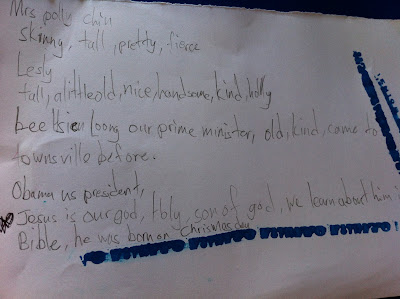 Mrs polly chin
skinny, tall, pretty, fierce
Lesly
tall, alittleold, nice, handsome, kind, holly
Lee Hsien loong our prime minister, old, kind, come to
townsville before.
Obama us president,
Jesus is our god, Holy, son of god, we learn about him in
Bible, he was born on Chrismas day